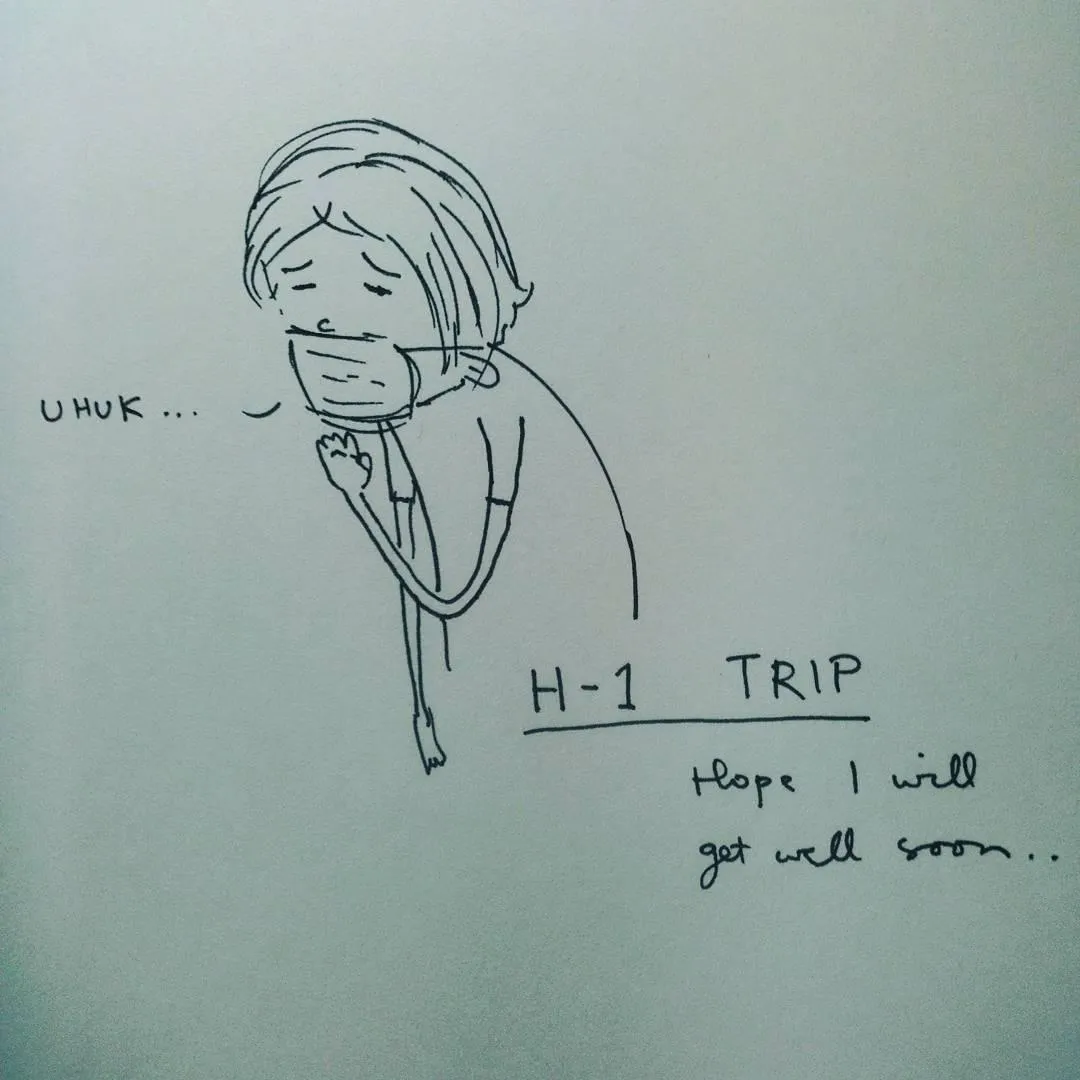 UHUK ...
H-1 TRIP
Hope I will
get well soon..